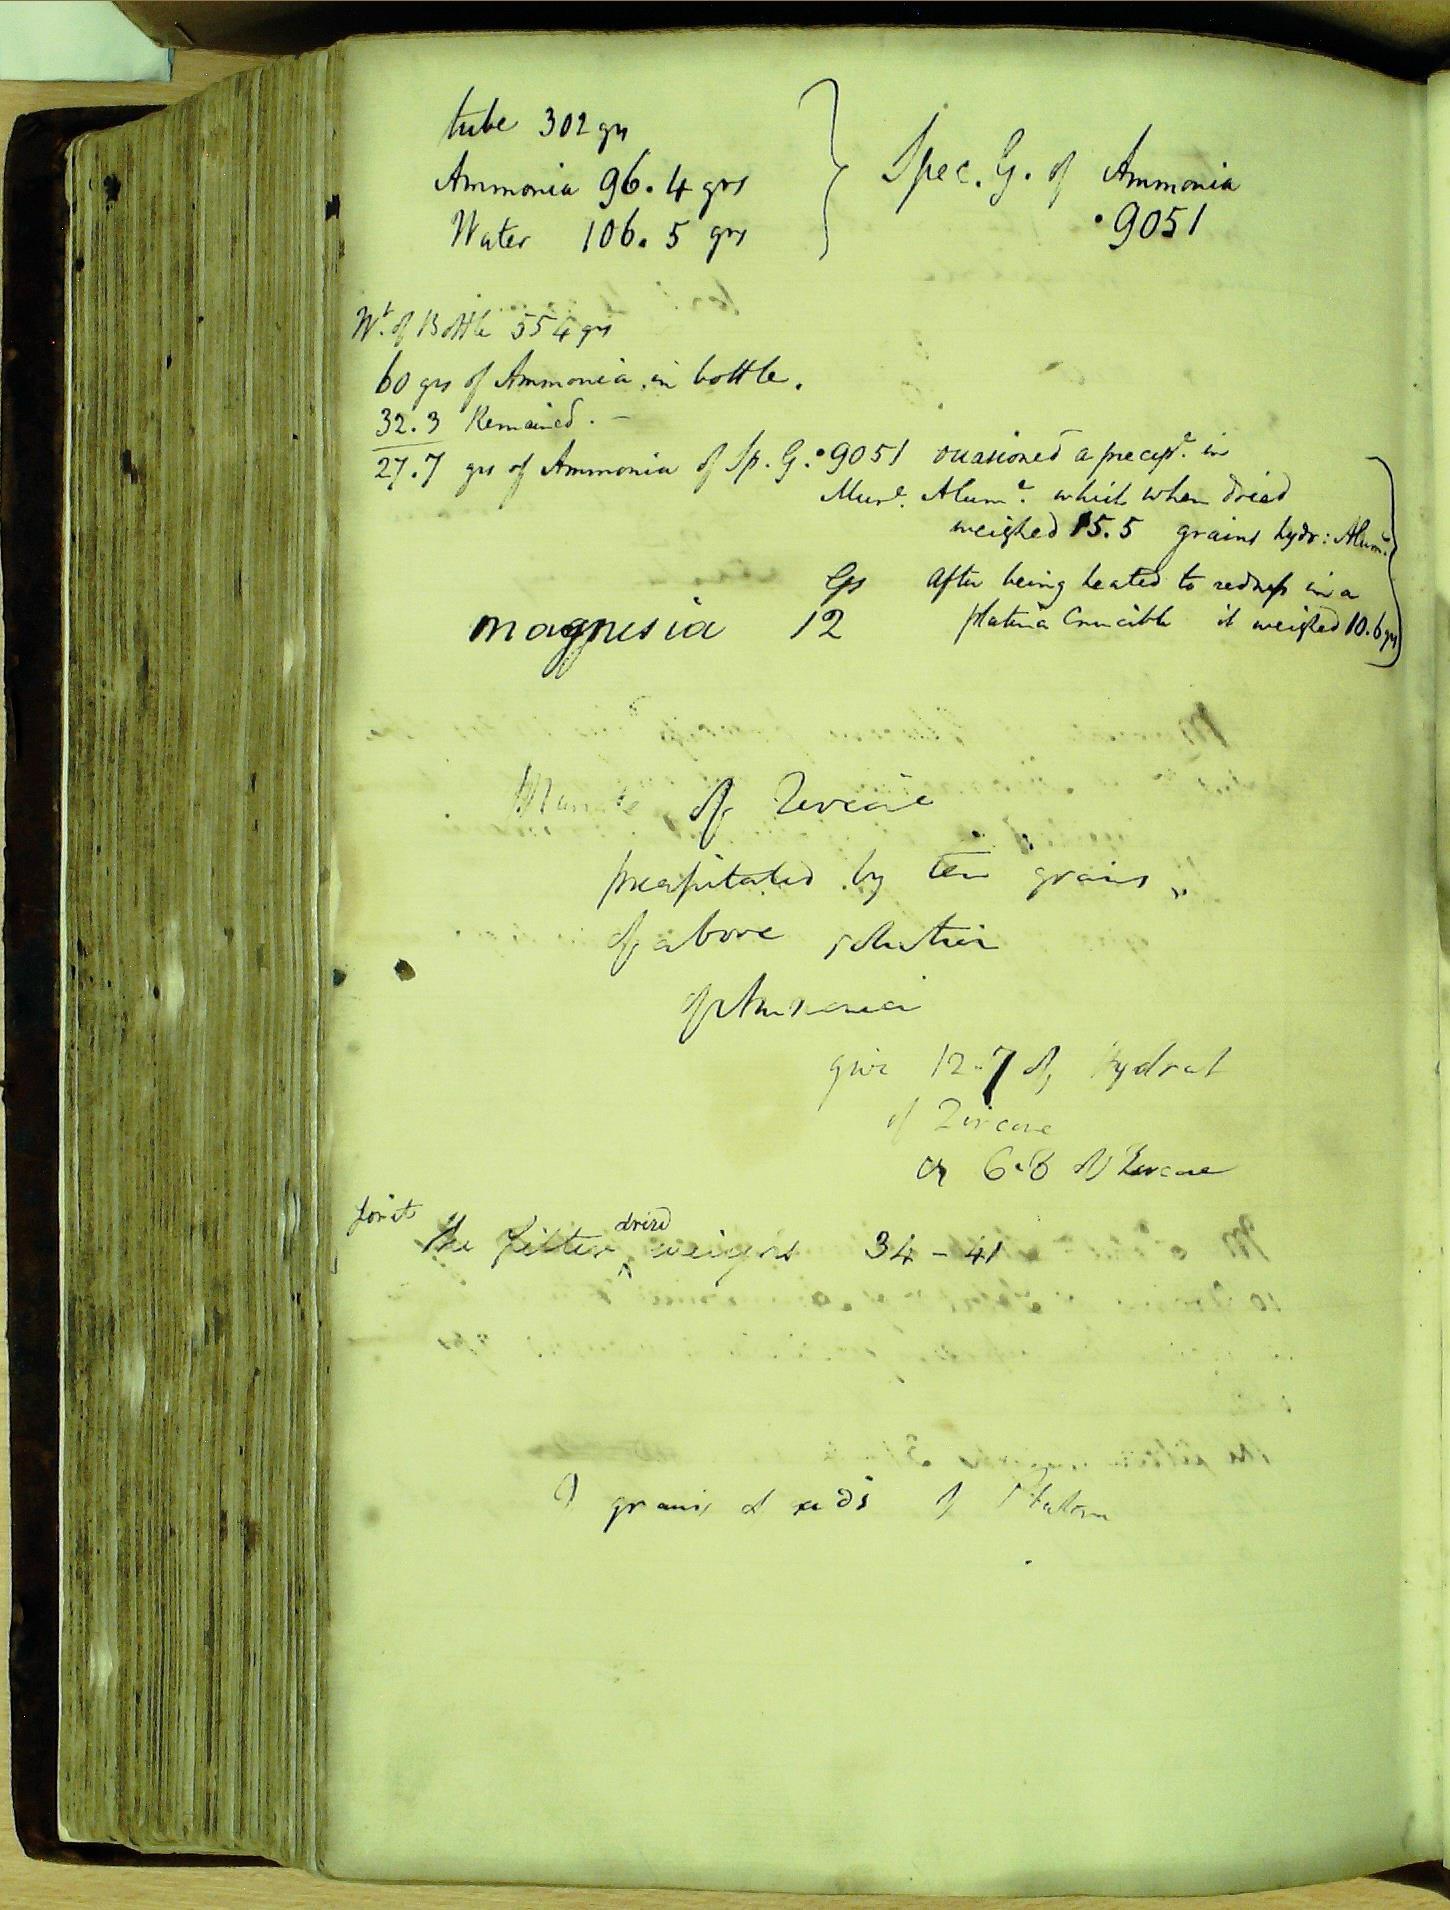 tube 302 grs
Ammonia 96.4 grs
Water 106.5 grs
Spec. G. of Ammonia
.9051
Wt. of Bottle 554 grs
60 grs of Ammonia in bottle.
32.3 Remained. —
27.7 grs of Ammonia of Sp. G. .9051 occasioned a precipe. in
Mure. Alume. which when dried
weighed 15.5 grains hydr: Alum:
Grs After being heated to redness in a
magnesia 12 platina Crucible it weighed 10.6 grs
Muriate of Zircone
precipitated by ten grains
of above solution
of Ammonia
give 12.7 of Hydrat
of Zircone
or 6.8 of Zircone
for it
the filter dried weighs 34 - 41
9 grains of of